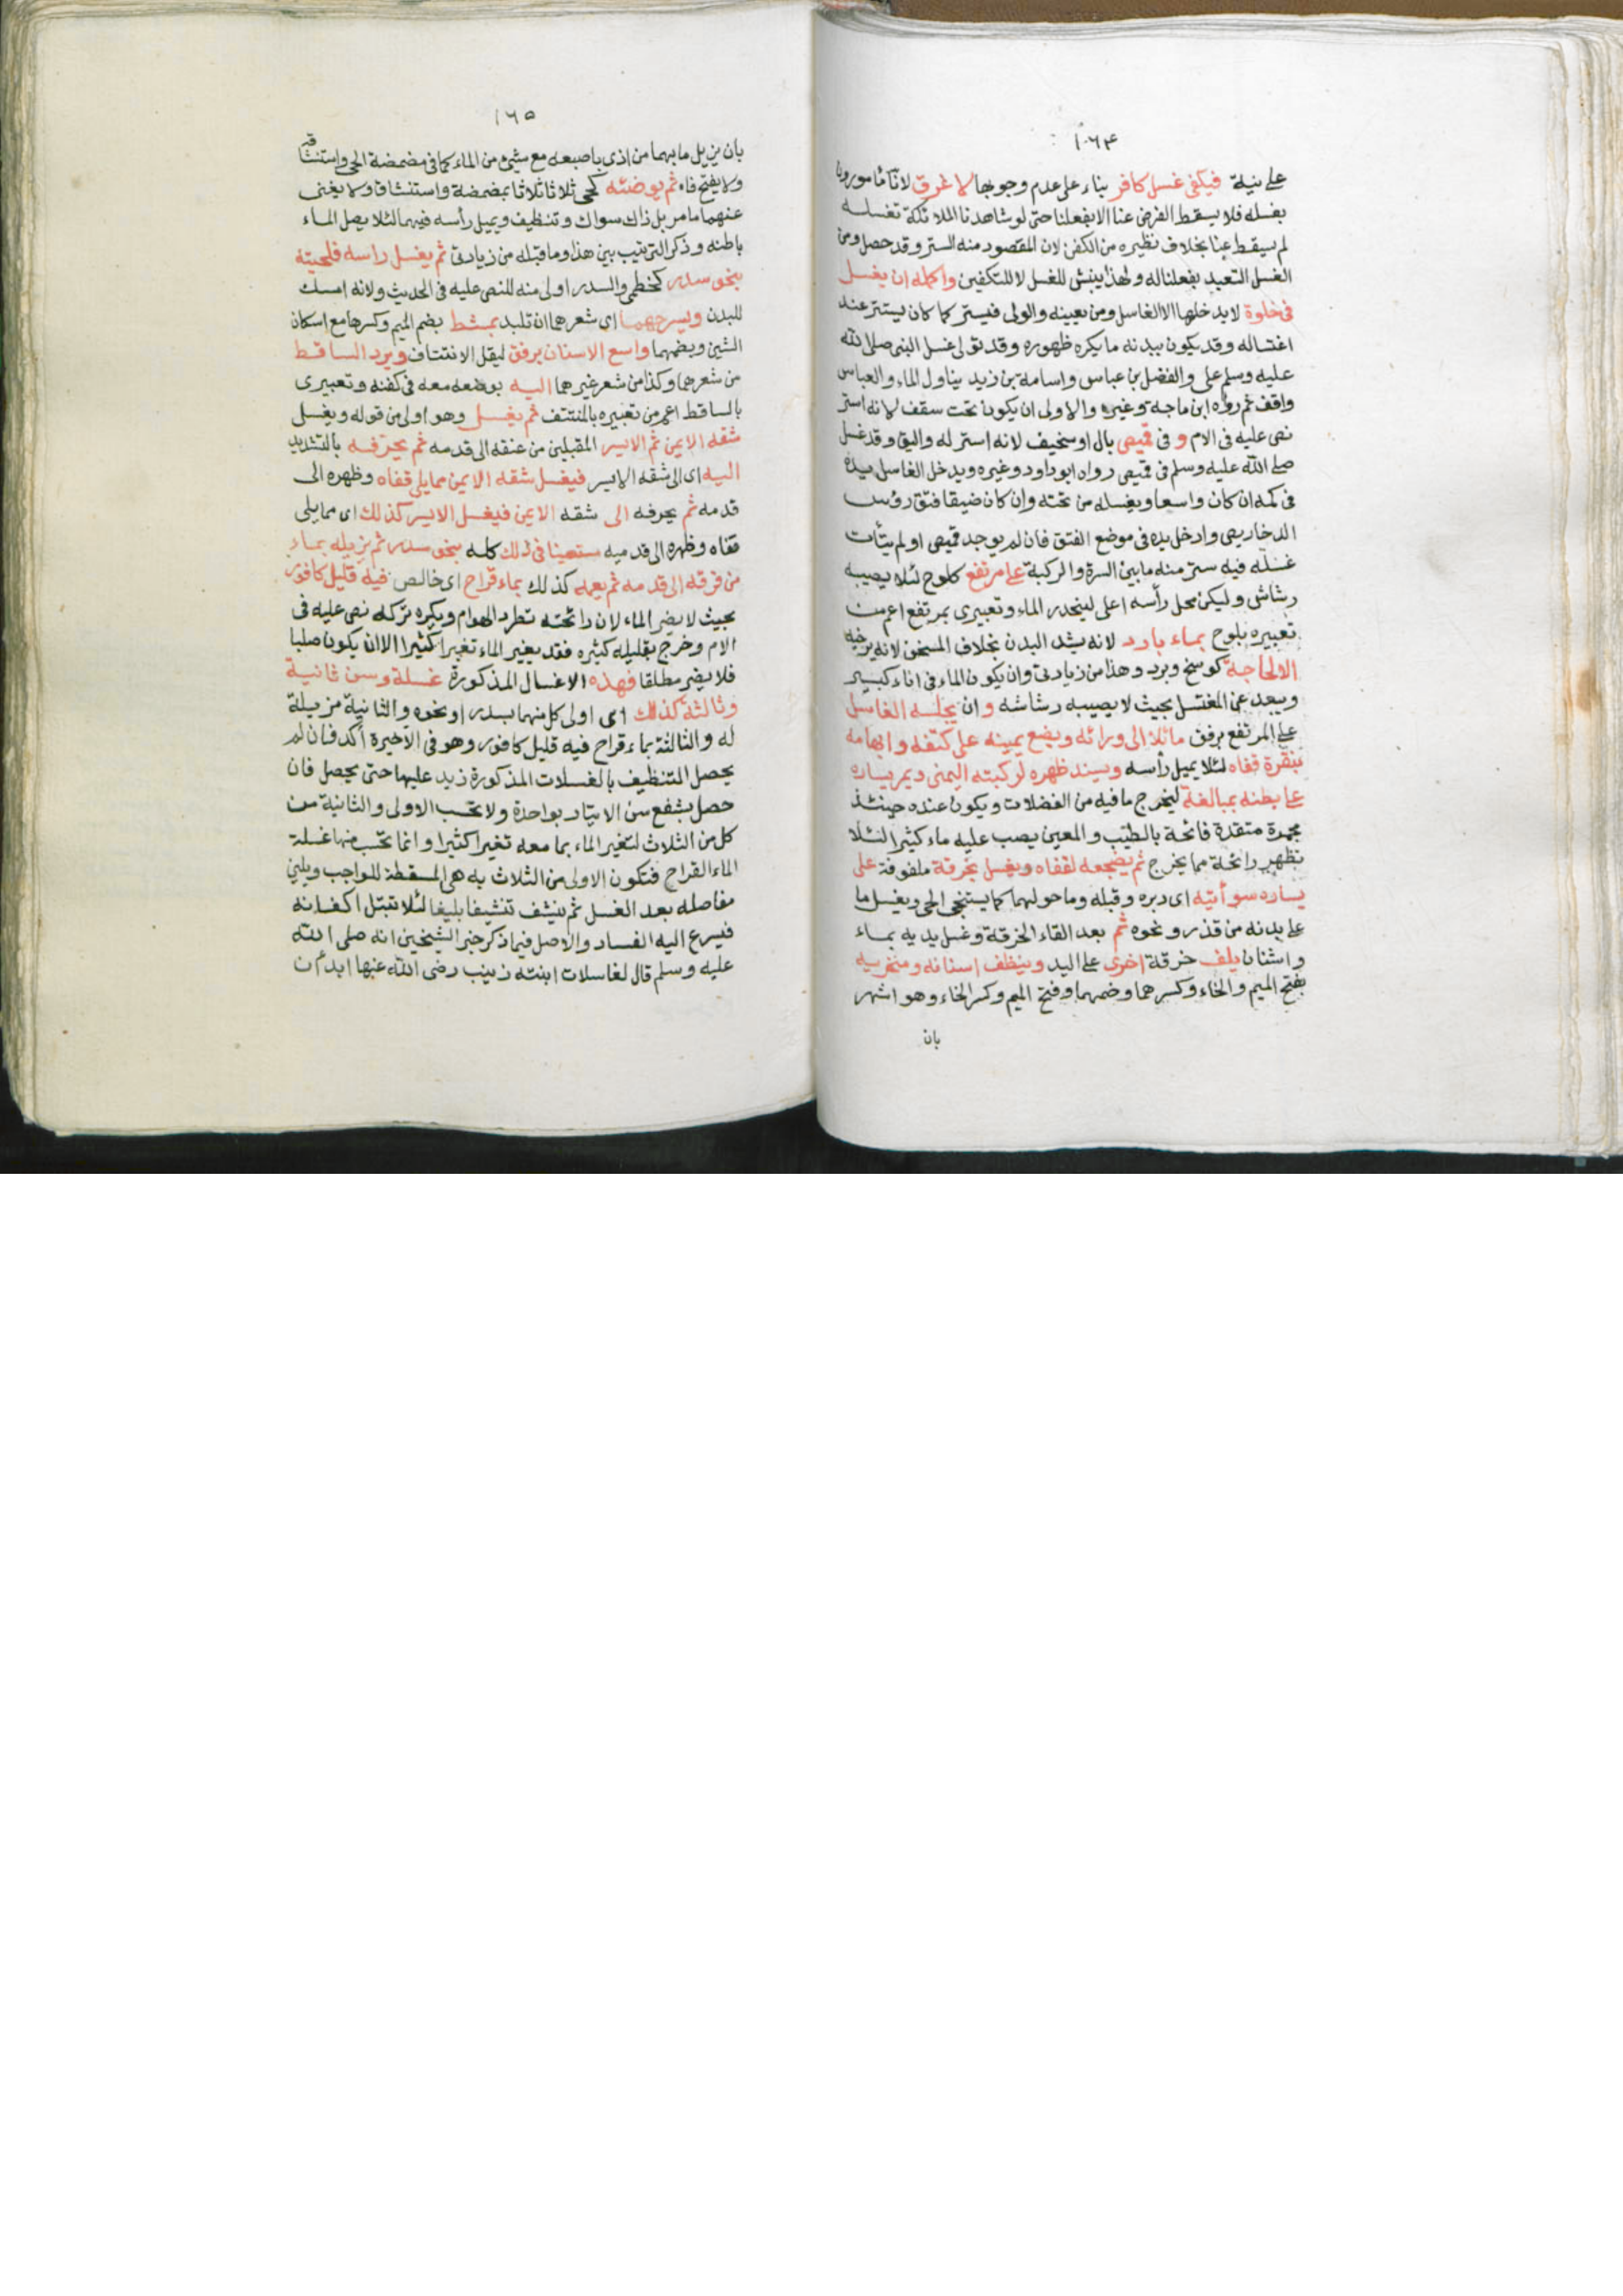 ١٠٦٤
على نية فيكفي غسل كافر بناء على عدم وجوبها لا غرق لانا مامورون
بغسله فلا يسقط الفرض عنا الا بفعلنا حتى لو شاهدنا الملائكة تغسله
لم يسقط عنا بخلاف نظيره من الكفن لان المقصود منه الستر وقد حصل ومن
الغسل التعبد بفعلنا له ولهذا ينبش للغسل لا للتكفين واكمله ان يغسل
في خلوة لا يدخلها الا الغاسل ومن يعينه والولي فيستر كما كان يستتر عند
اغتساله وقد يكون ببدنه ما يكره ظهوره وقد تولى غسل النبي صلى الله
عليه وسلم علي والفضل بن عباس واسامة بن زيد يناول الماء والعباس
واقف ثم رواه ابن ماجة وغيره والاولى ان يكون تحت سقف لانه استر
نص عليه في الام و في قميص بال او سخيف لانه استر له واليق وقد غسل
صلى الله عليه وسلم في قميص رواه ابو داود وغيره ويدخل الغاسل يده
في كمه ان كان واسعا ويغسله من تحته وان كان ضيقا فتق رؤس
الدخاريص وادخل يده في موضع الفتق فان لم يوجد قميص او لم يتأت
غسله فيه ستر منه ما بين السرة والركبة على مرتفع كلوح لئلا يصيبه
رشاش وليكن محل رأسه اعلى لينحدر الماء وتعبيري بمرتفع اعم من
تعبيره بلوح بماء بارد لانه يشد البدن بخلاف المسخن لانه يرخيه
الا لحاجة كوسخ وبرد وهذا من زيادتي وان يكون الماء في اناء كبير
ويبعد عن المغتسل بحيث لا يصيبه رشاشه و ان يجلسه الغاسل
على المرتفع برفق مائلا الى ورائه ويضع يمينه على كتفه وابهامه
بنقرة قفاه لئلا يميل رأسه ويسند ظهره لركبته اليمنى ويمر يساره
على بطنه بمبالغة ليخرج ما فيه من الفضلات ويكون عنده حينئذ
مجمرة متقدة فائحة بالطيب والمعين يصب عليه ماء كثيرا لئلا
تظهر رائحة مما يخرج ثم يضجعه لقفاه ويغسل بخرقة ملفوفة على
يساره سوأتيه اي دبره وقبله وما حولهما كما يستنجي الحي ويغسل ما
على بدنه من قذر ونحوه ثم بعد القاء الخرقة وغسل يديه بماء
واشنان يلف خرقة اخرى على اليد وينظف اسنانه ومنخريه
بفتح الميم والخاء وكسرهما وضمهما وفتح الميم وكسر الخاء وهو اشهر
بان
١٦٥
بان يزيل ما بهما من اذى باصبعه مع شيء من الماء كما في مضمضة الحي واستنشاقه
ولا يفتح فاه ثم يوضئه كحي ثلاثا ثلاثا بمضمضة واستنشاق ولا يغني
عنهما ما مر بل ذاك سواك وتنظيف ويميل رأسه فيهما لئلا يصل الماء
باطنه وذكر الترتيب بين هذا وما قبله من زيادتي ثم يغسل راسه فلحيته
بنحو سدر كخطمي والسدر اولى منه للنص عليه في الحديث ولانه امسك
للبدن ويسرحهما اي شعرهما ان تلبد بمشط بضم الميم وكسرها مع اسكان
الشين وبضمهما واسع الاسنان برفق ليقل الانتتاف ويرد الساقط
من شعرهما وكذا من شعر غيرهما اليه بوضعه معه في كفنه وتعبيري
بالساقط اعم من تعبيره بالمنتتف ثم يغسل وهو اولى من قوله ويغسل
شقه الايمن ثم الايسر المقبلين من عنقه الى قدمه ثم يحرفه بالتشديد
اليه اي الى شقه الايسر فيغسل شقه الايمن مما يلي قفاه وظهره الى
قدمه ثم يحرفه الى شقه الايمن فيغسل الايسر كذلك اي مما يلي
قفاه وظهره الى قدميه مستعينا في ذلك كله بنحو سدر ثم يزيله بماء
من فرقه الى قدمه ثم يعمه كذلك بماء قراح اي خالص فيه قليل كافور
بحيث لا يضر الماء لان رائحته تطرد الهوام ويكره تركه نص عليه في
الام وخرج بقليله كثيره فقد يغير الماء تغيرا كثيرا الا ان يكون صلبا
فلا يضر مطلقا فهذه الاغسال المذكورة غسلة وسن ثانية
وثالثة كذلك اي اولى كل منهما بسدر او نحوه والثانية مزيلة
له والثالثة بماء قراح فيه قليل كافور وهو في الاخيرة اكد فان لم
يحصل التنظيف بالغسلات المذكورة زيد عليها حتى يحصل فان
حصل بشفع سن الايتار بواحدة ولا تحسب الاولى والثانية من
كل من الثلاث لتغير الماء بما معه تغيرا كثيرا وانما تحسب منها غسلة
الماء القراح فتكون الاولى من الثلاث به هي المسقطة للواجب ويلين
مفاصله بعد الغسل ثم ينشف تنشيفا بليغا لئلا تبتل اكفانه
فيسرع اليه الفساد والاصل فيما ذكر خبر الشيخين انه صلى الله
عليه وسلم قال لغاسلات ابنته زينب رضي الله عنها ابدأن